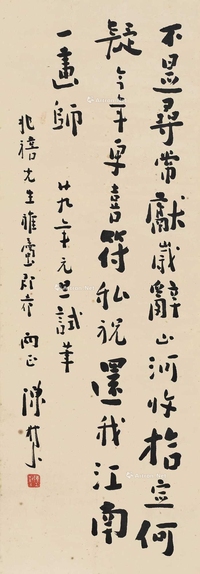 不是尋常獻歲辭山河收拾定何
疑今年早喜符私祝還我江南
一畫師 廿九年元旦試筆
兆禧先生雅鑒即希 兩正 陳樹人